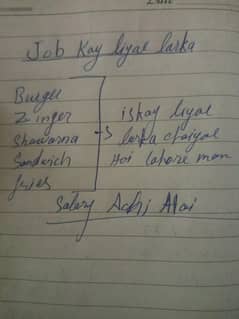 Job Kay liyae larka
Burger
Zinger
Shawarma
Sandwich
fries
ishay liyae
larka chaiyae
Hoi lahore man
Salary Achi Hai